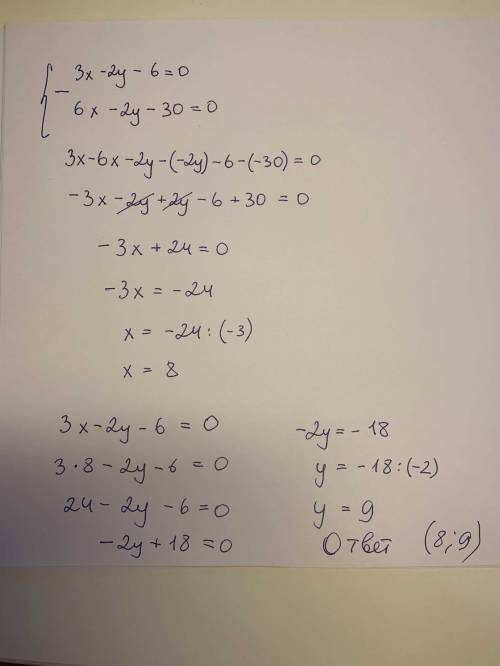 3x - 2y - 6 = 0
-
6x - 2y - 30 = 0
3x - 6x - 2y - (-2y) - 6 - (-30) = 0
-3x - 2y + 2y - 6 + 30 = 0
-3x + 24 = 0
-3x = -24
x = -24 : (-3)
x = 8
3x - 2y - 6 = 0
3 · 8 - 2y - 6 = 0
24 - 2y - 6 = 0
-2y + 18 = 0
-2y = -18
y = -18 : (-2)
y = 9
Ответ (8; 9)